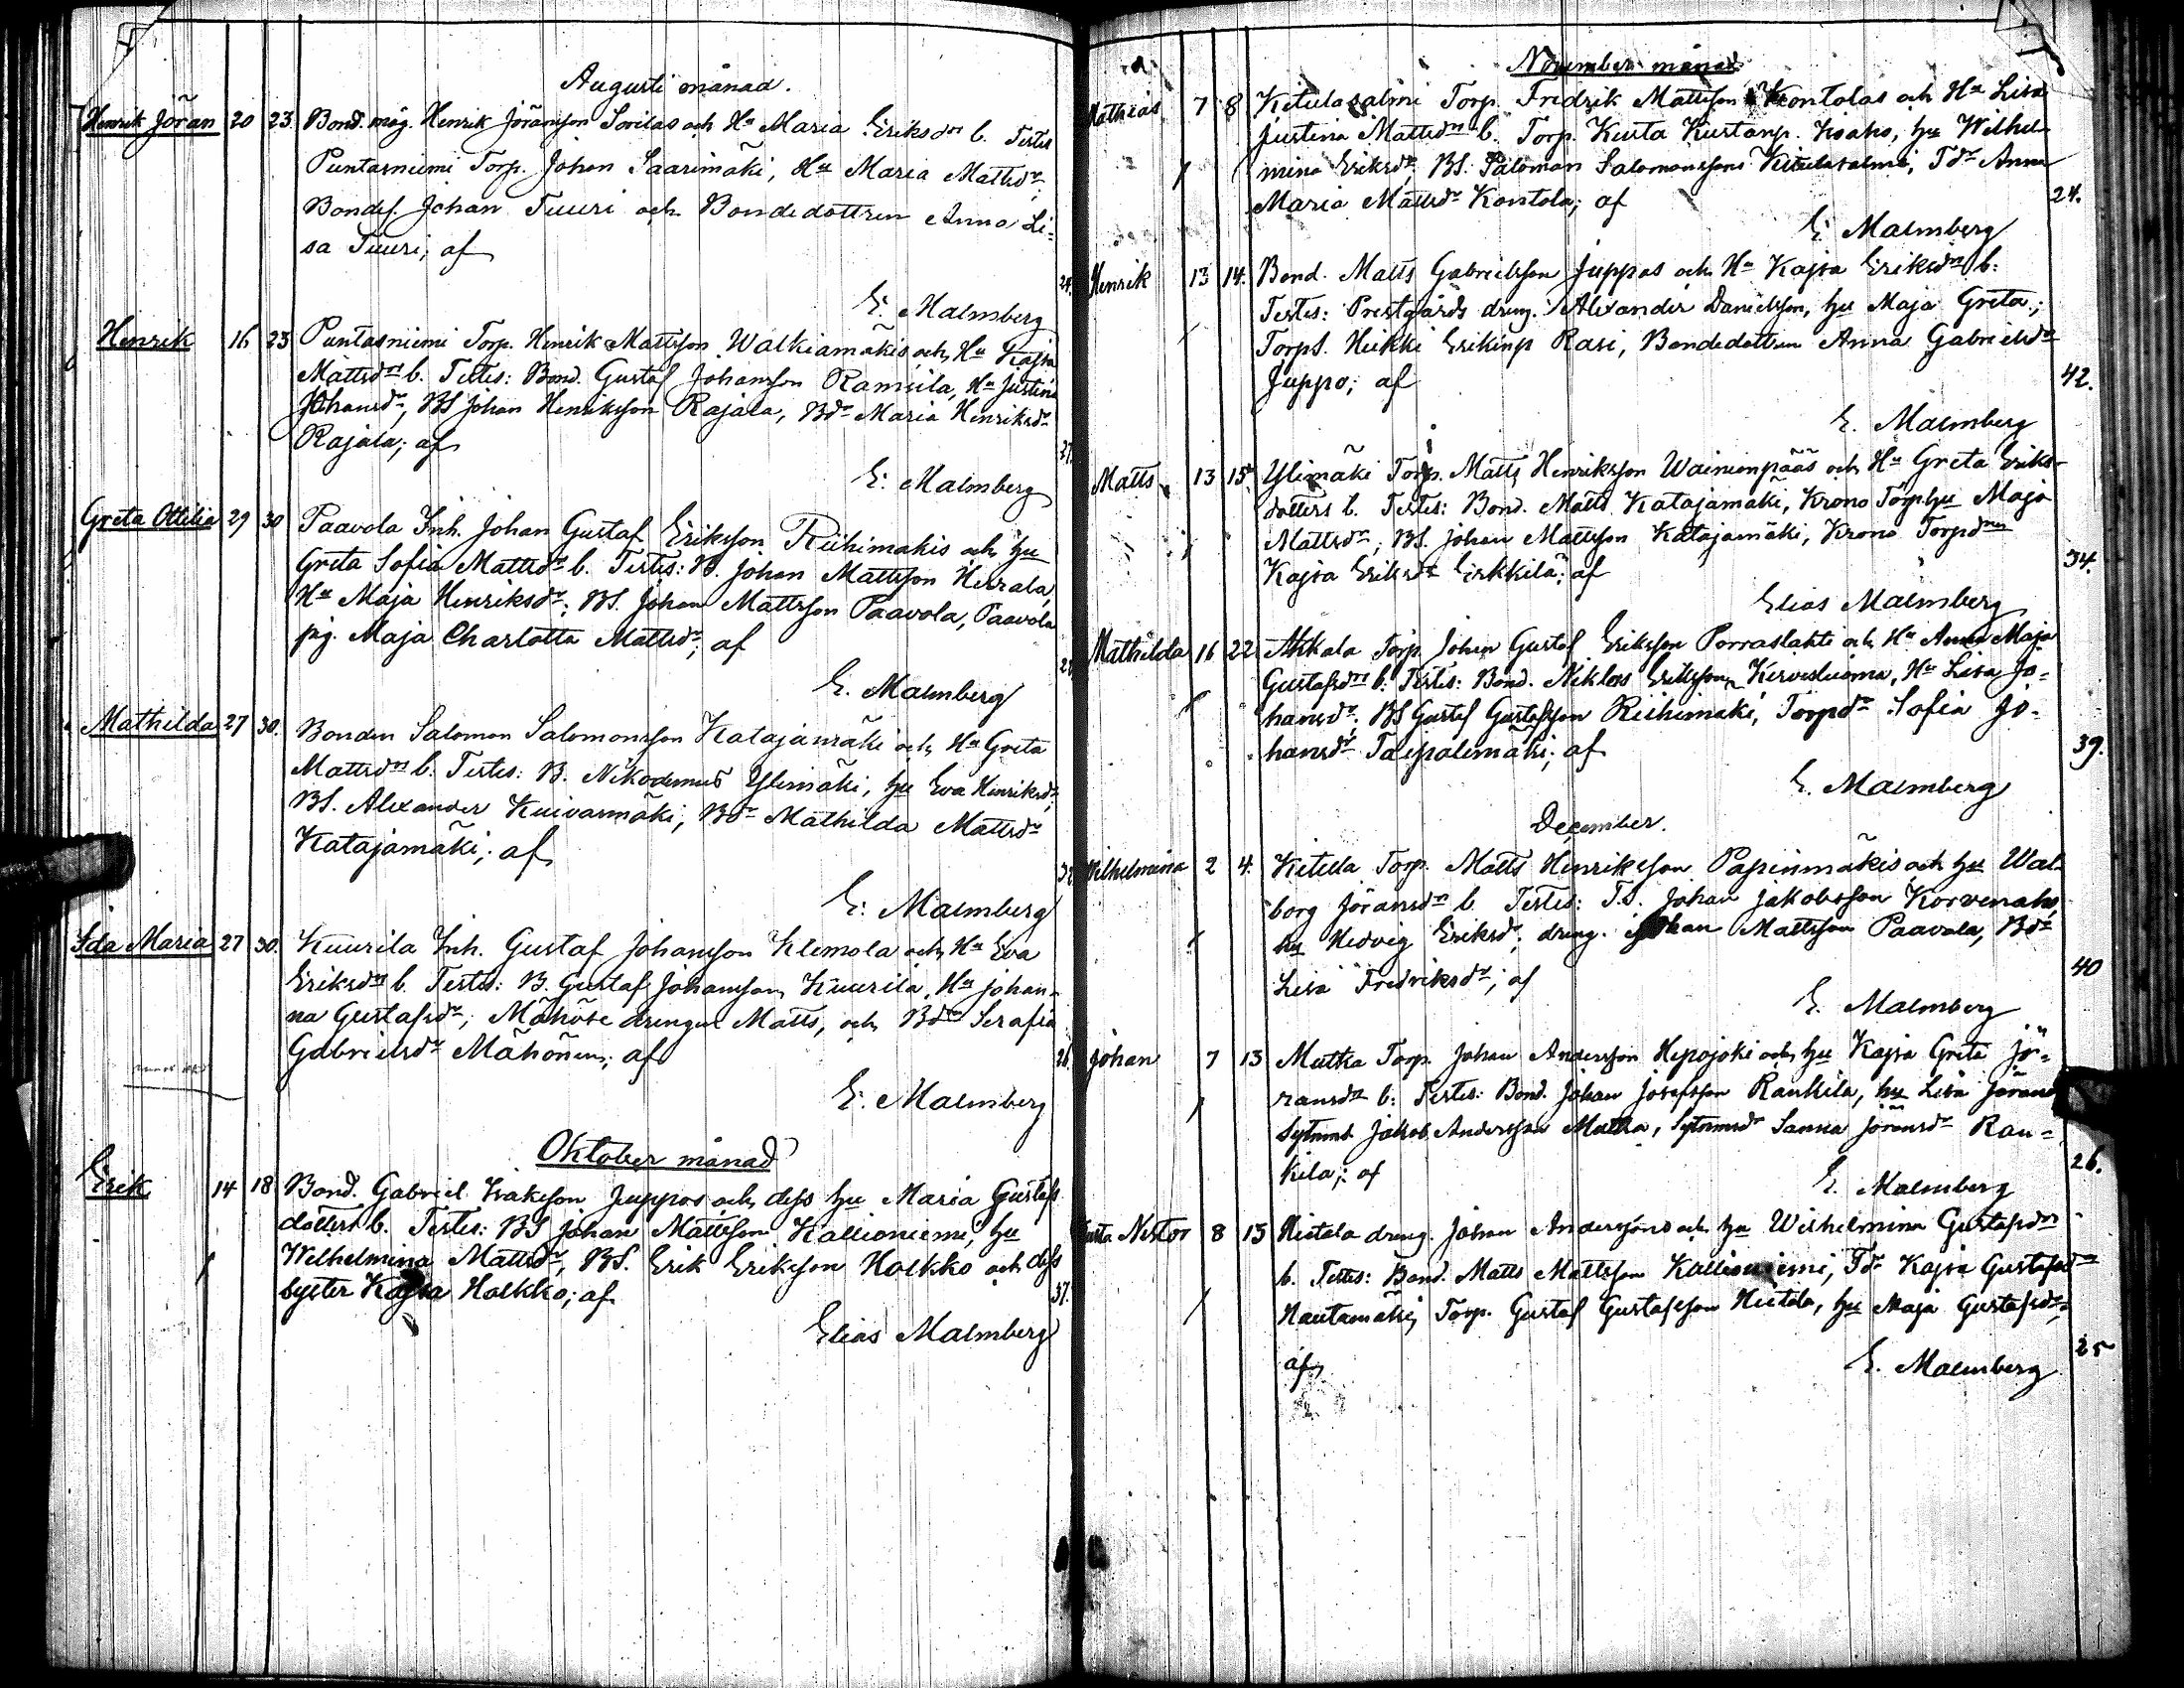 Augusti månad.
Henrik Jöran 20 23. Bond. måg. Henrik Jöransson Sorilas och Hu Maria Eriksdrs b. Testes
Puntarniemi Torp. Johan Saarimäki, Hu Maria Mattsdr,
Bondes. Johan Tuuri och Bondedottren Anna Li=
sa Tuuri; af 24.
E. Malmberg
Henrik 16 23 Puntasniemi Torp. Henrik Mattsson Walkiamäkis och Hu Kajsa
Mattsdrs b. Testes: Bond. Gustaf Johansson Ramsila, Hu Justina
Johansdr, BS Johan Henriksson Rajala, Bdr Maria Henriksdr
Rajala; af 27.
E. Malmberg
Greta Ottilia 29 30 Paavola Inh. Johan Gustaf Eriksson Riihimäkis och hu
Greta Sofia Mattsdrs b. Testes: B. Johan Mattsson Herrala,
Hu Maja Henriksdr; BS. Johan Mattsson Paavola, Paavola
pig. Maja Charlotta Mattsdr; af
E. Malmberg
Mathilda 27 30. Bonden Salomon Salomonsson Katajamäki och Hu Greta
Mattsdrs b. Testes: B. Nikodemus Ylimäki, hu Eva Henriksdr;
BS. Alexander Kuivasmäki, Bdr Mathilda Mattsdr
Katajamäki; af 32
E. Malmberg
Ida Maria 27 30. Kuurila Inh. Gustaf Johansson Klemola och Hu Eva
Eriksdrs b. Testes: B. Gustaf Johansson Kuurila, Hu Johan=
na Gustafsdr; Mähöse drengen Matts, och Bdr Serafia
Gabrielsdr Mähönen; af 26.
E. Malmberg
Oktober månad
Erik 14 18 Bond. Gabriel Isaksson Juppos och dess hu Maria Gustafs
dotters b. Testes: BS Johan Mattsson Kallioniemi, hu
Wilhelmina Mattsdr, BS. Erik Eriksson Holkko och dess
syster Kajsa Holkko; af 37.
Elias Malmberg
November månad
Mathias 7 8 Ketulasalmi Torp. Fredrik Mattsson Kontolas och Hu Lisa
Justina Mattsdrs b. Torp. Kusta Kustanp. Kisaho, hu Wilhel-
mina Eriksdr, BS. Salomon Salomonssons Ketulasalmi, Tdr Anna
Maria Mattsdr Kontola; af 24.
E. Malmberg
Henrik 13 14. Bond. Matts Gabrielsson Juppos och Hu Kajsa Eriksdrs b:
Testes: Prestgårds dreng. Alexander Danielsson, hu Maja Greta;
Torps. Heikki Erikinp Rasi, Bondedottren Anna Gabrielsdr
Juppo; af 42.
E. Malmberg
Matts 13 15 Ylimäki Torp. Matts Henriksson Wainionpääs och Hu Greta Eriks-
dotters b. Testes: Bond. Matts Katajamäki, Krono Torp hu Maja
Mattsdr; BS. Johan Mattsson Katajamäki, Krono Torpdren
Kajsa Eriksdr Erkkilä; af 34.
Elias Malmberg
Mathilda 16 22 Akkala Torp. Johan Gustaf Eriksson Porraslahti och Hu Anna Maja
Gustafsdrs b: Testes: Bond. Niklas Eriksson Kirvesluoma, Hu Lisa Jo=
hansdr; BS Gustaf Gustafsson Riihimäki, Torpdr Sofia Jo-
hansdr Taipalemäki; af 39.
E. Malmberg
December.
Wilhelmina 2 4. Ketula Torp. Matts Henriksson Papinmäkis och hu Wal-
borg Jöransdrs b Testes: T.S. Johan Jakobsson Korvenaho,
hu Hedvig Eriksdr; dreng. Johan Mattsson Paavola, Bdr
Lisa Fredriksdr; af 40
E. Malmberg
Johan 7 13 Mutka Torp. Johan Andersson Hepojoki och hu Kajsa Greta Jö=
ransdrs b: Testes: Bond. Johan Josefsson Rankila, hu Lisa Jörans
Sytnms. Jakob Andersson Mutka, Sytnmsdr Sanna Jöransdr Ran=
kila; af 26.
E. Malmberg
Kusta Nestor 8 13 Hietala dreng. Johan Anderssons och hu Wilhelmina Gustafsdrs
b. Testes: Bond. Matts Mattsson Kallioniemi, Tdr Kajsa Gustafsdr
Hautamäki; Torp. Gustaf Gustafsson Hietala, hu Maja Gustafsdr;
af 25
E. Malmberg